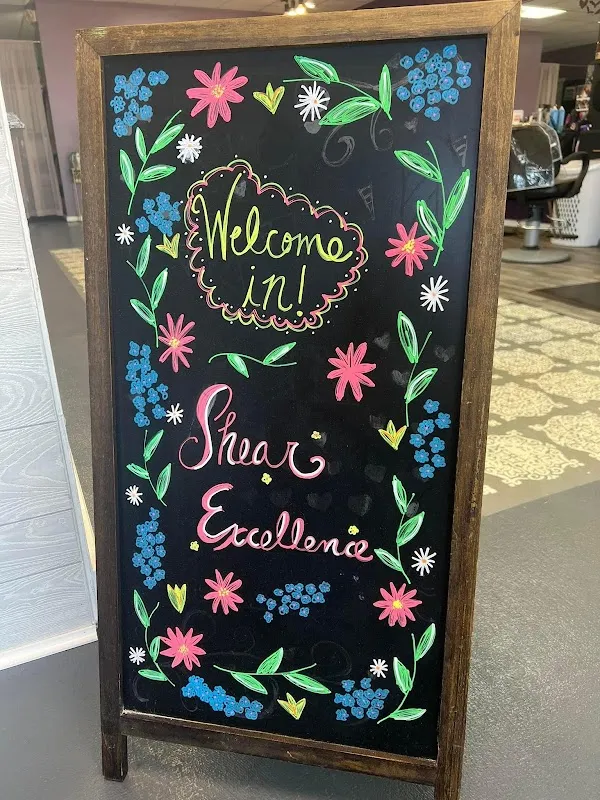 Welcome
in!
Shear
Excellence